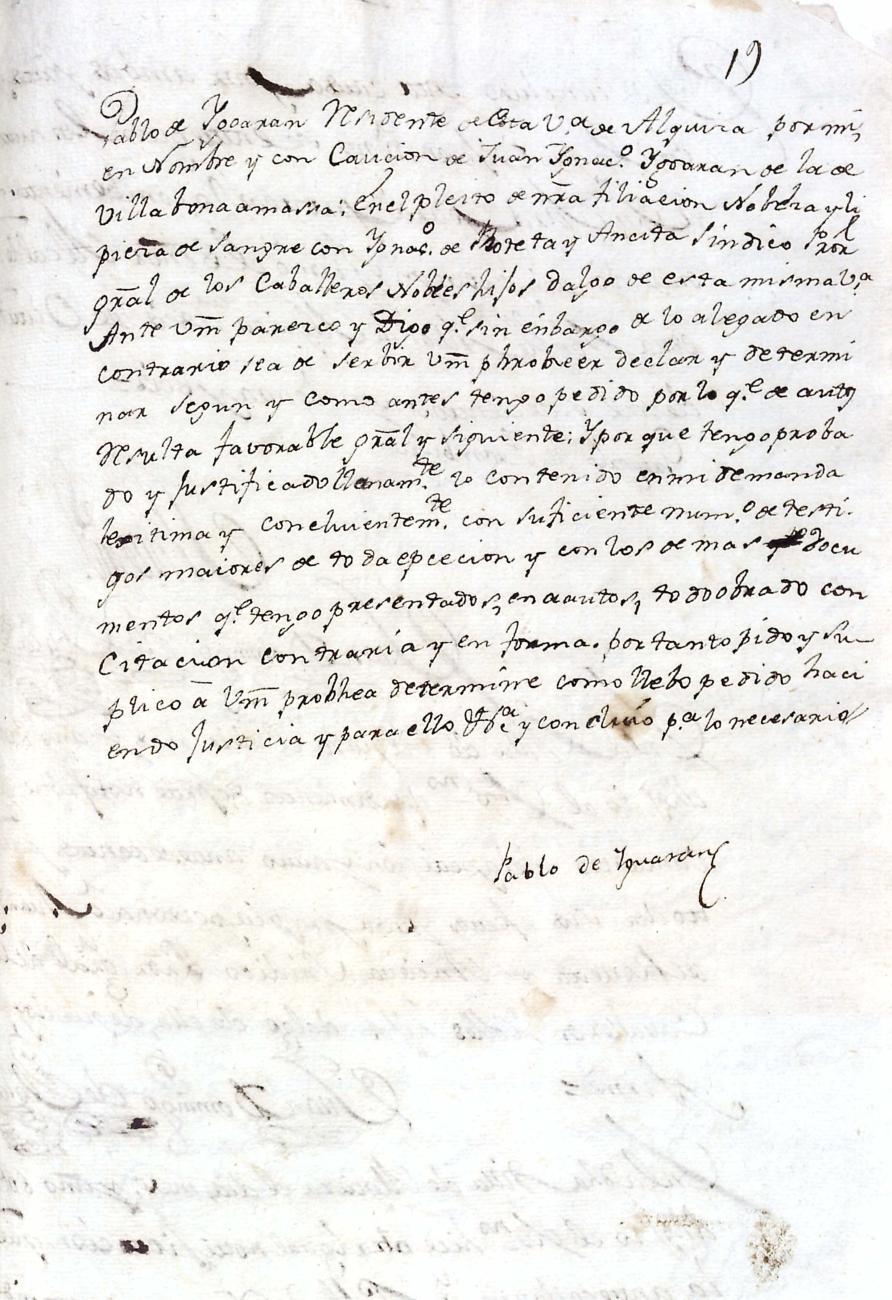 19
Pablo de Ygoaran Residente de Esta V.ª de Alquiza por mi,
en Nombre y con Caucion de Juan Ygnac.º Ygoaran de la de
Villabona amassa; En el pleito de nrâ filiacion Nobleza y li
pieza de sangre con Ygnac.º de Roteta y Ancita sindico Pror
grâl de los Caballeros Nobles hijos dalgo de esta misma V.ª
Ante Vm̃ parezco y Digo q.e sin enbargo de lo alegado en
contrario sea de serbir Vm̃ phrobeer declar y determi
nar segun y como antes tengo pedido por lo q.e de autos
Resulta favorable grâl y siguiente; Y por que tengo proba
do y Justificado llanam.te lo contenido en mi demanda
lexitima y concluientem.te con suficiente num.º de testi.
gos maiores de toda epcecion y con los demas docu
mentos q.e tengo presentados, en aautos, todo obrado con
Citacion contraria y en forma. por tanto pido y su
plico â Vm̃ probhea determine como llebo pedido haci
endo Justicia y para ello &ª y concluio p.ª lo necesario
Pablo de Yguaran